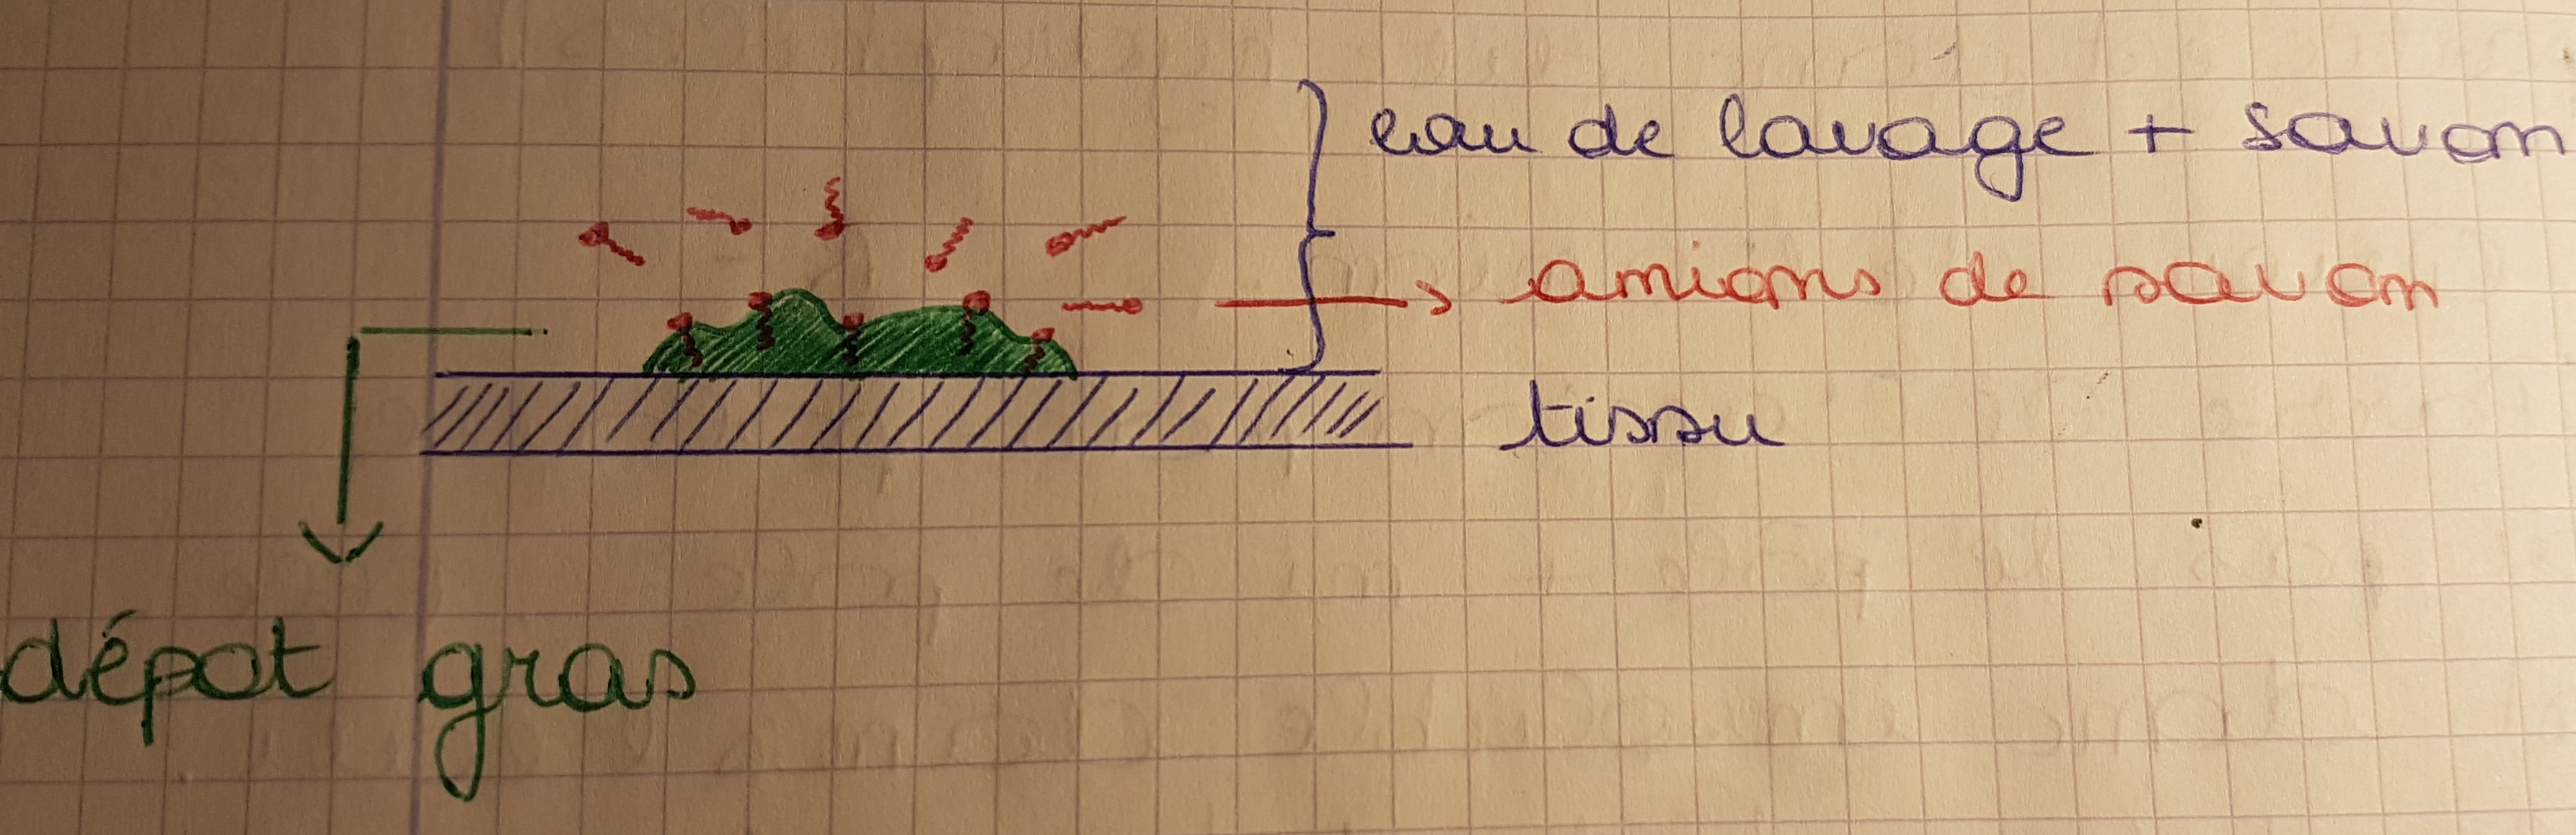 eau de lavage + savon
anions de savon
tissu
dépot gras